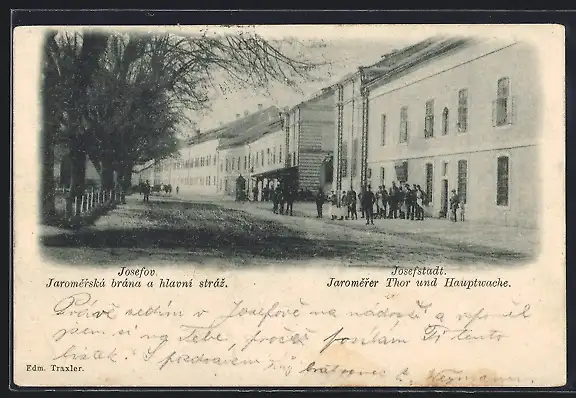 Josefov.
Jaroměřská brána a hlavní stráž.
Josefstadt.
Jaroměřer Thor und Hauptwache.
Právě sedím v Josefově na nádraží a vzpoměl
jsem si na Tebe, pročež posílám Ti tento
lístek. S pozdravem Tvůj
Edm. Traxler.